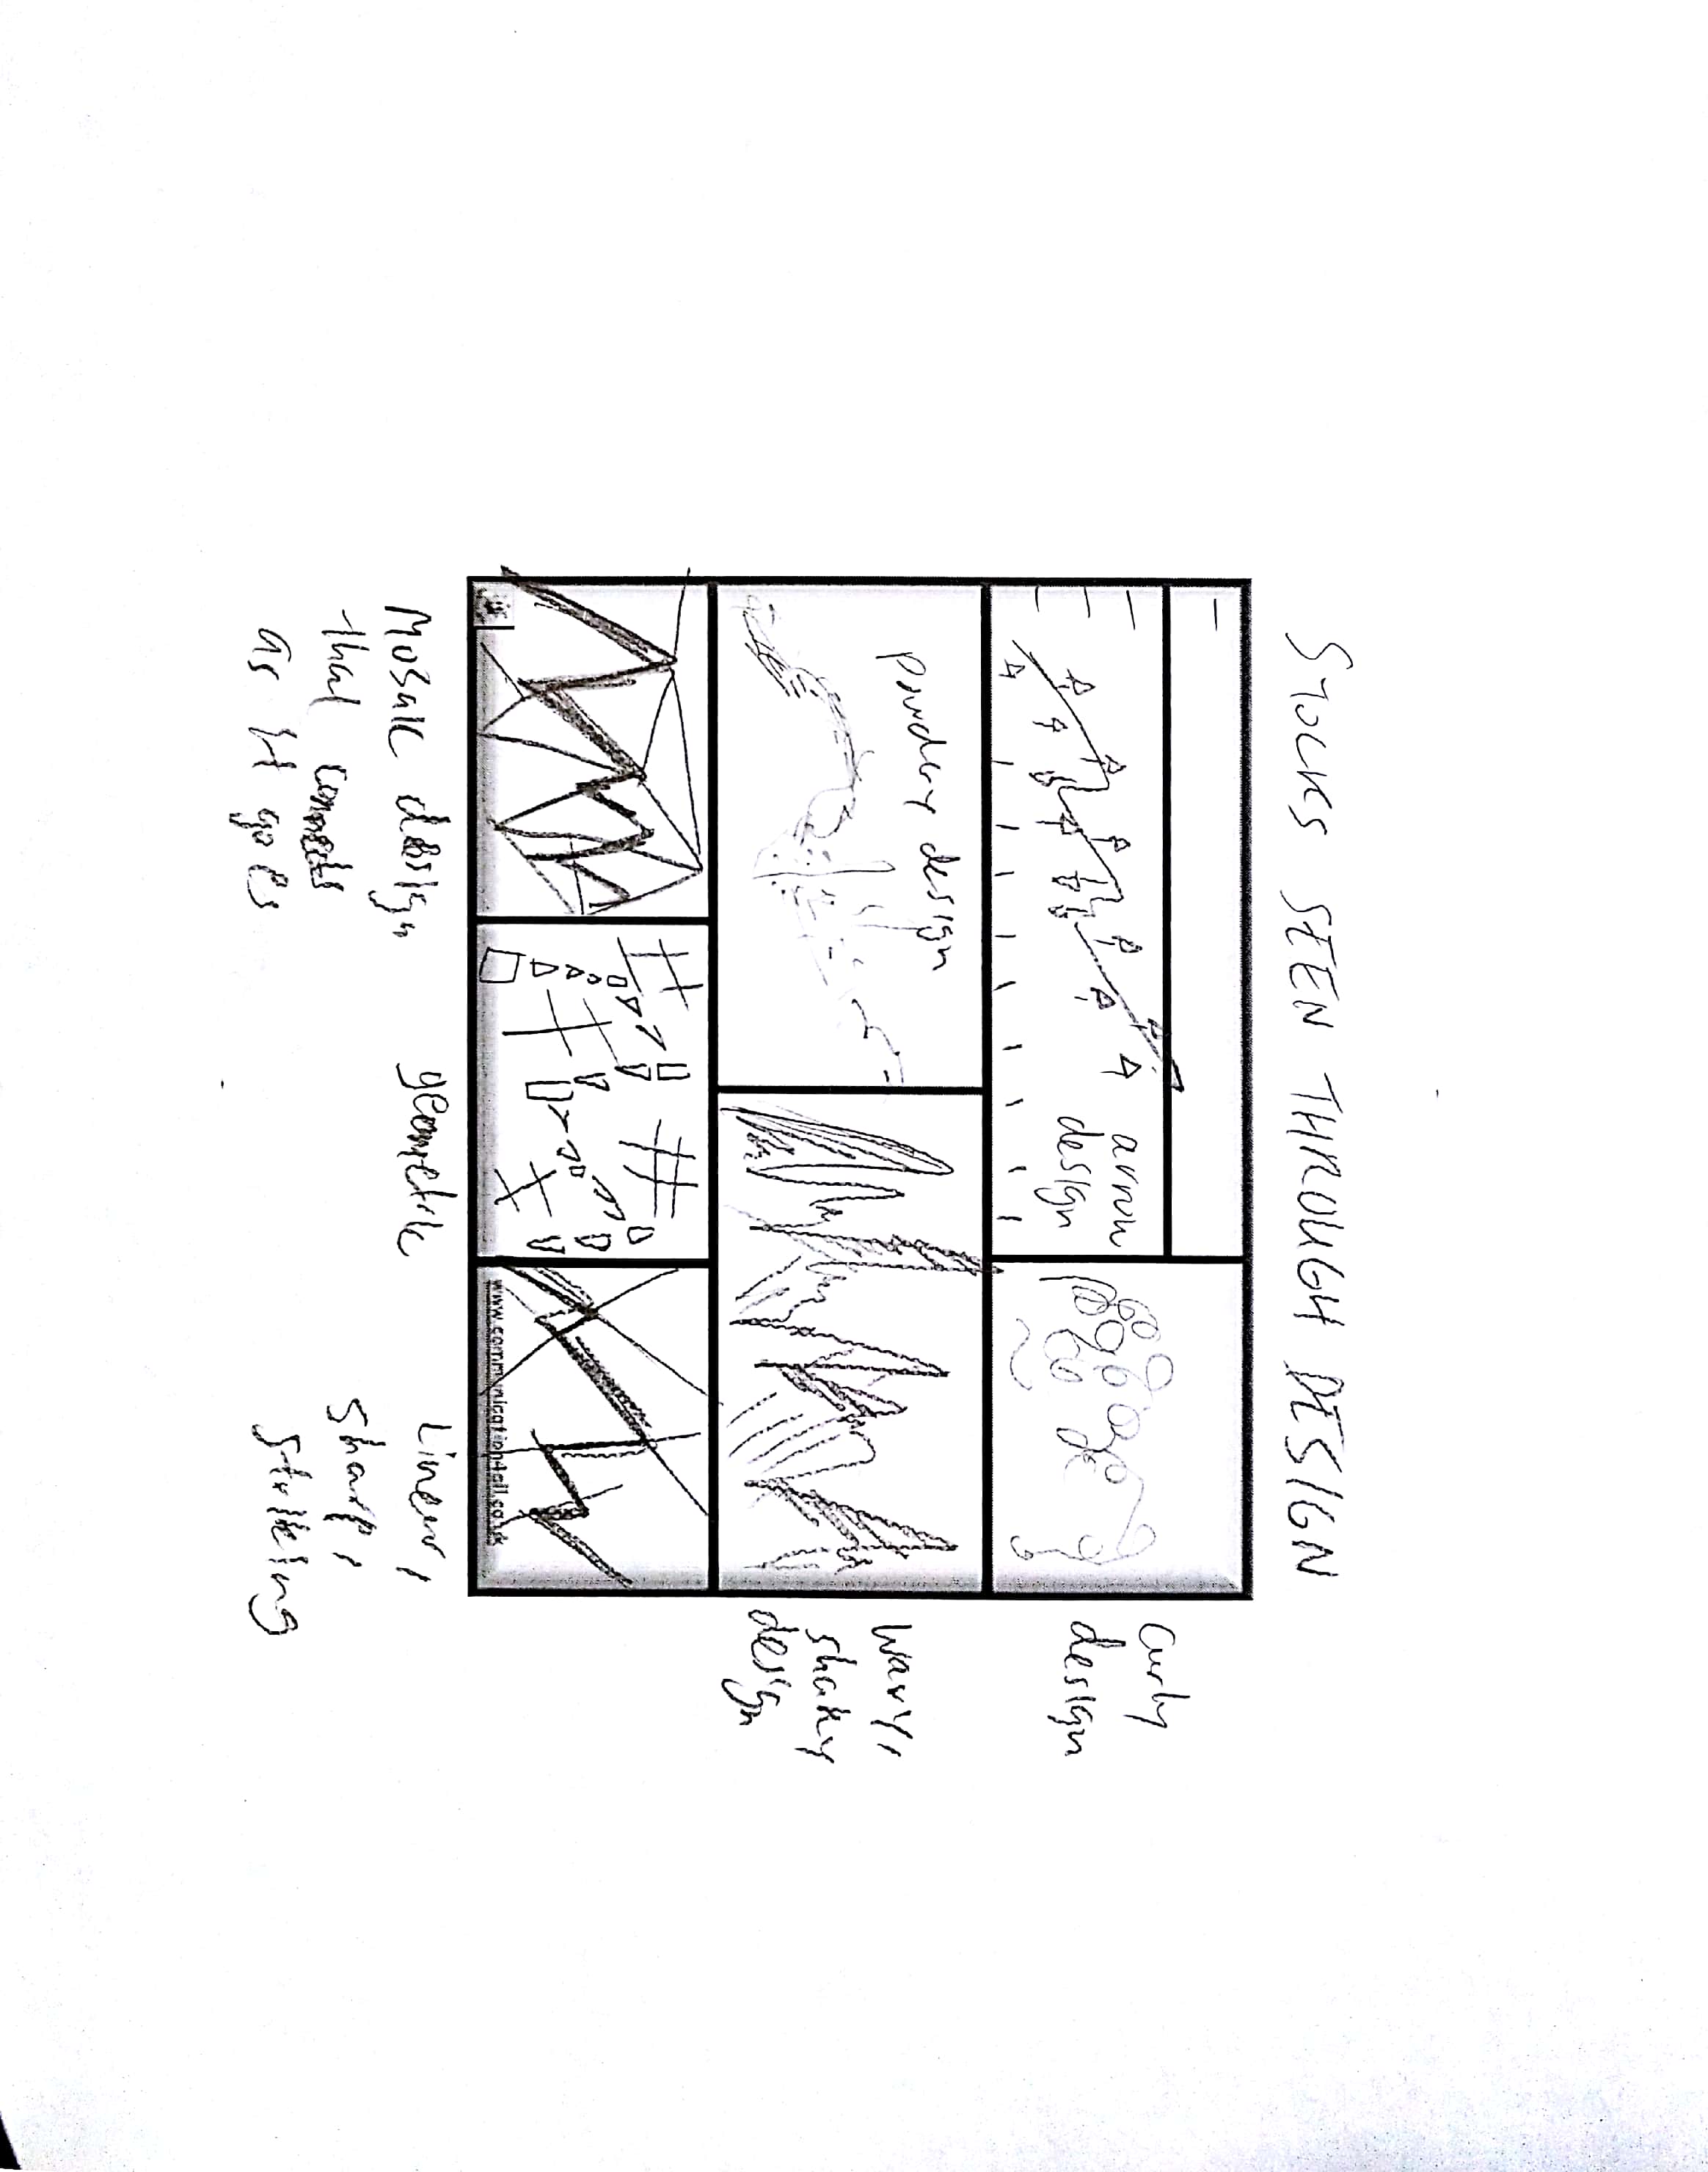 STOCKS SEEN THROUGH DESIGN
arrow
design
curly
design
powdery design
wavy,
shaky
design
www.communication4all.co.uk
Mosaic design
that connects
as it goes
geometric
Linear,
sharp,
striking